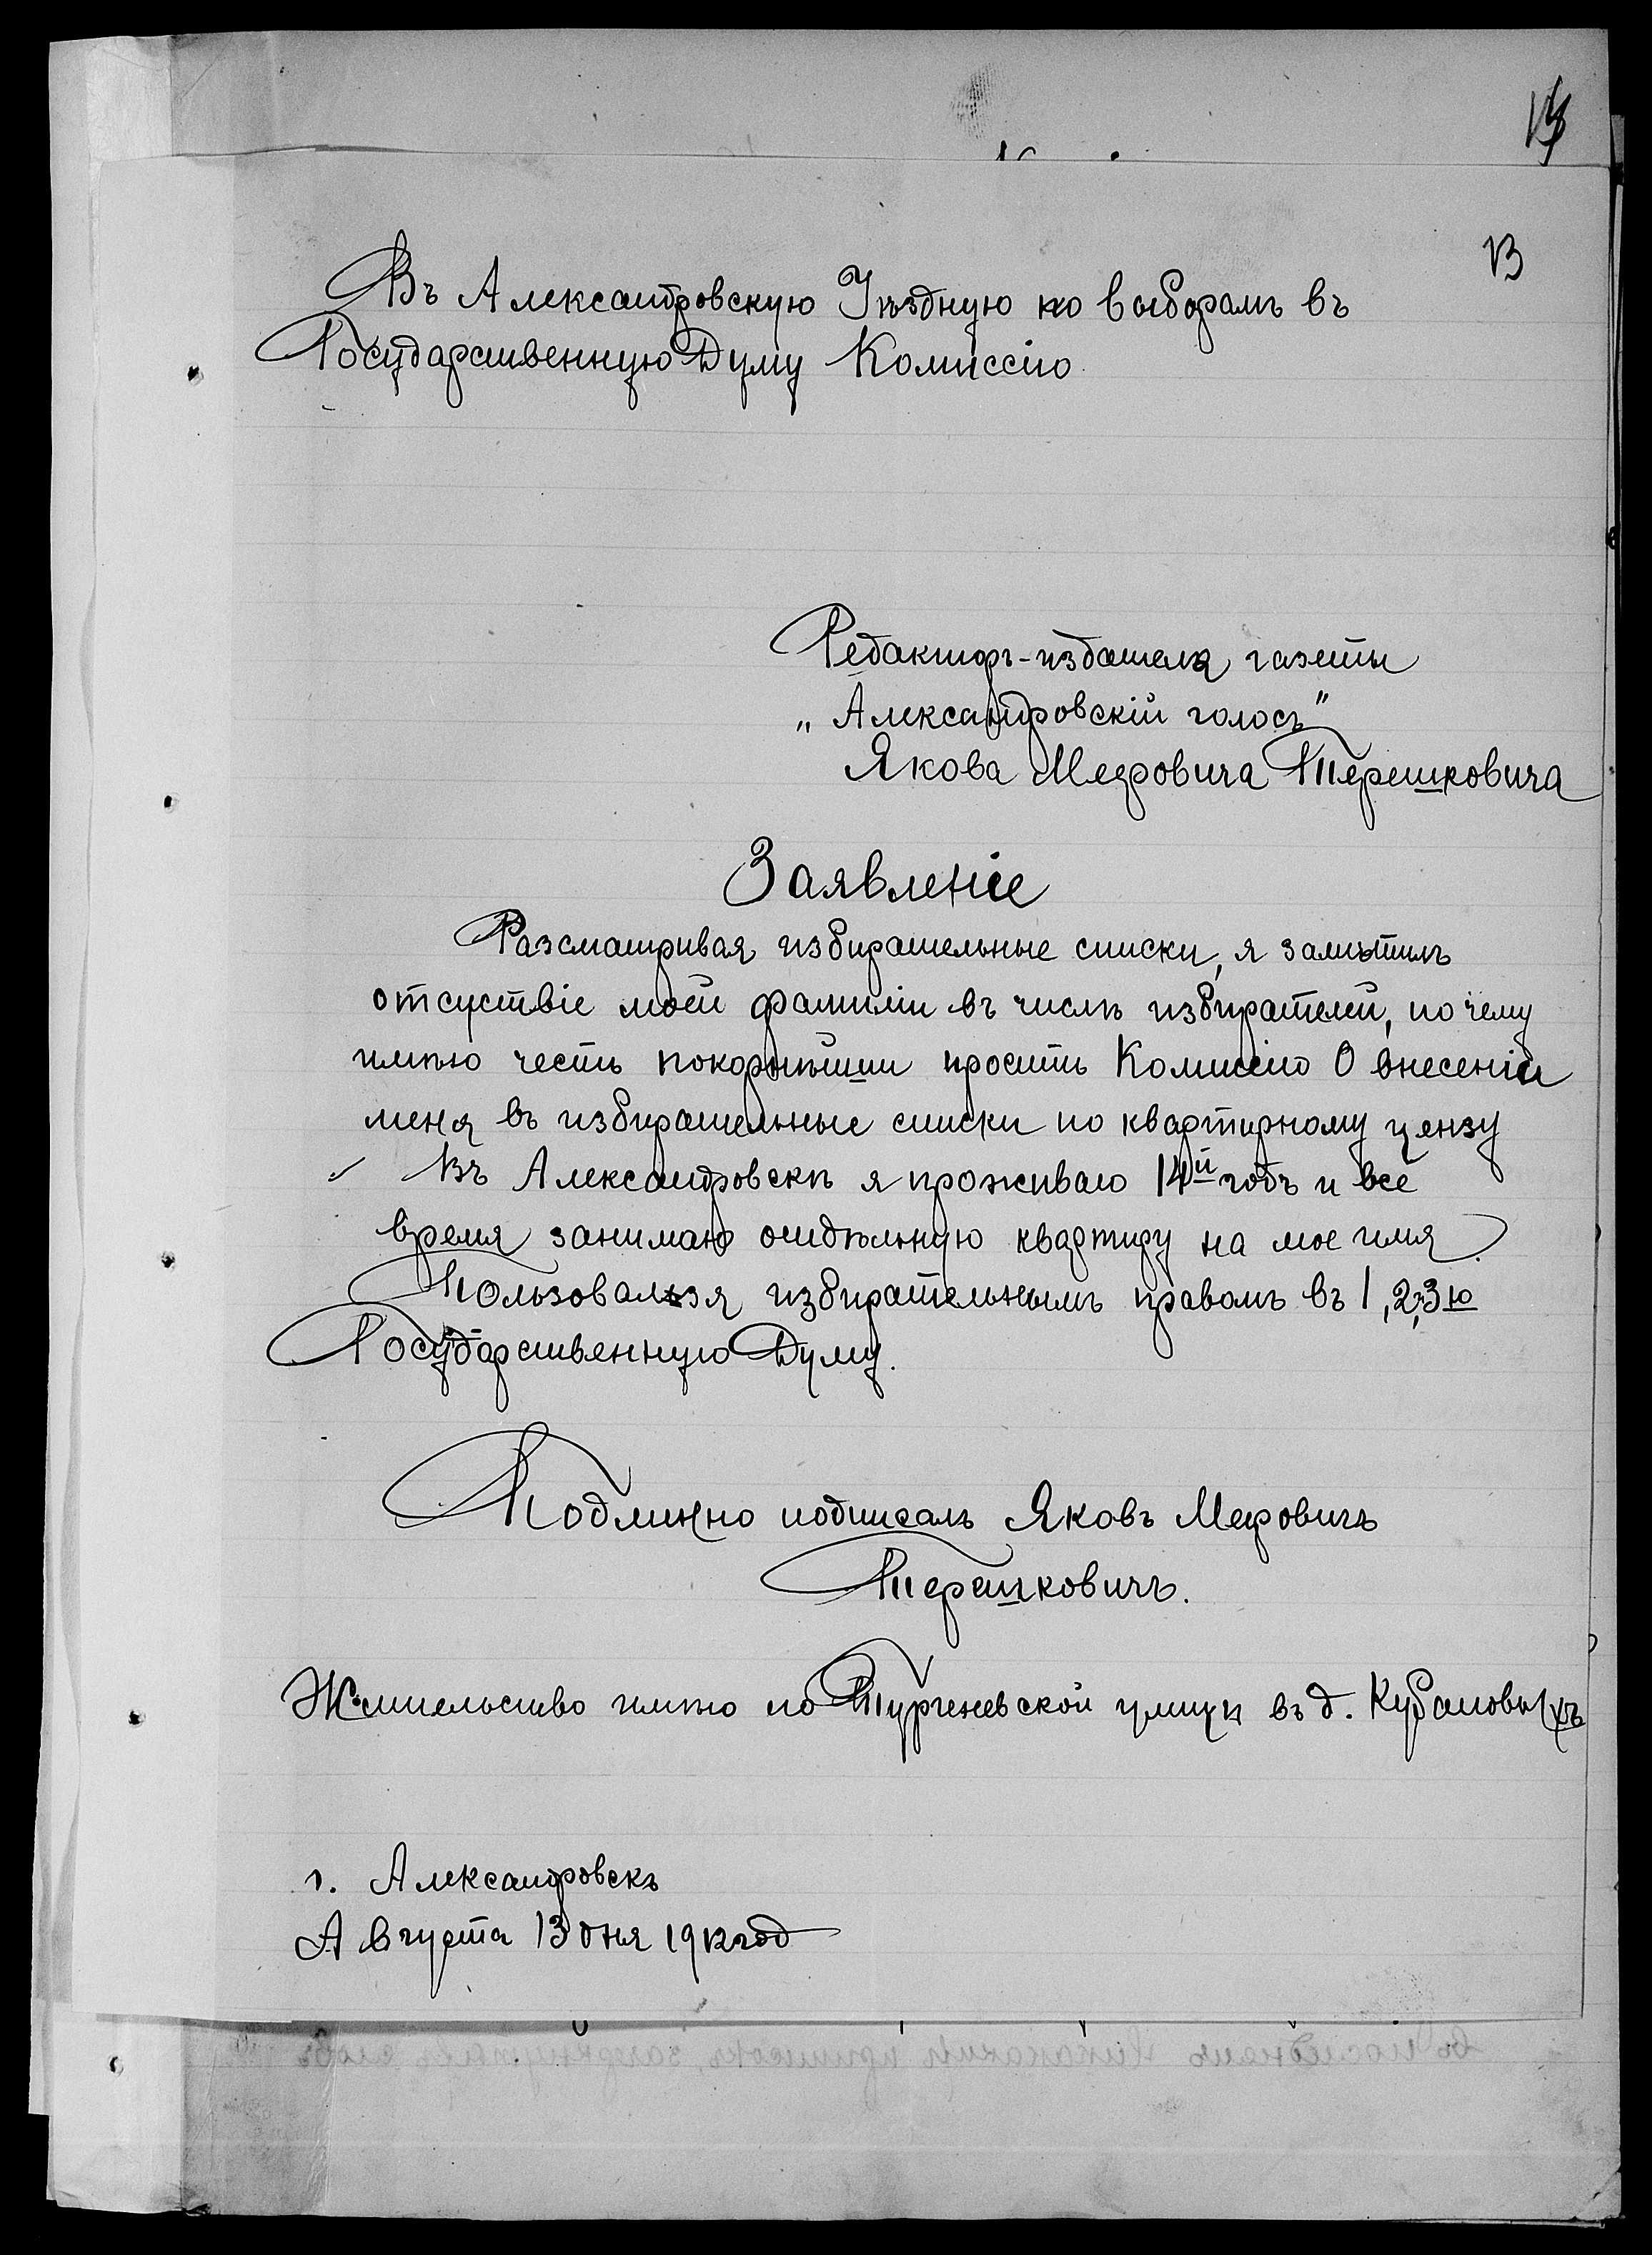 13
Въ Александровскую Уѣздную по выборамъ въ
Государственную Думу Комиссію
Редакторъ-издателя газеты
„Александровскій голосъ"
Якова Мееровича Терешковича
Заявленіе
Разсматривая избирательные списки, я замѣтилъ
отсуствіе моей фамиліи въ числѣ избирателей, по чему
имѣю честь покорнѣйши просить Комиссію О внесеніи
меня въ избирательные списки по квартирному цензу
Въ Александровскѣ я проживаю 14й годъ и все
время занимаю отдѣльную квартиру на мое имя.
Пользовался избирательнымъ правомъ въ 1, 2, 3ю
Государственную Думу.
Подлинно подписалъ Яковъ Меровичъ
Терешковичъ.
Жительство имѣю по Тургеневской улицѣ въ д.
г. Александровскъ
Августа 13 дня 1912 год